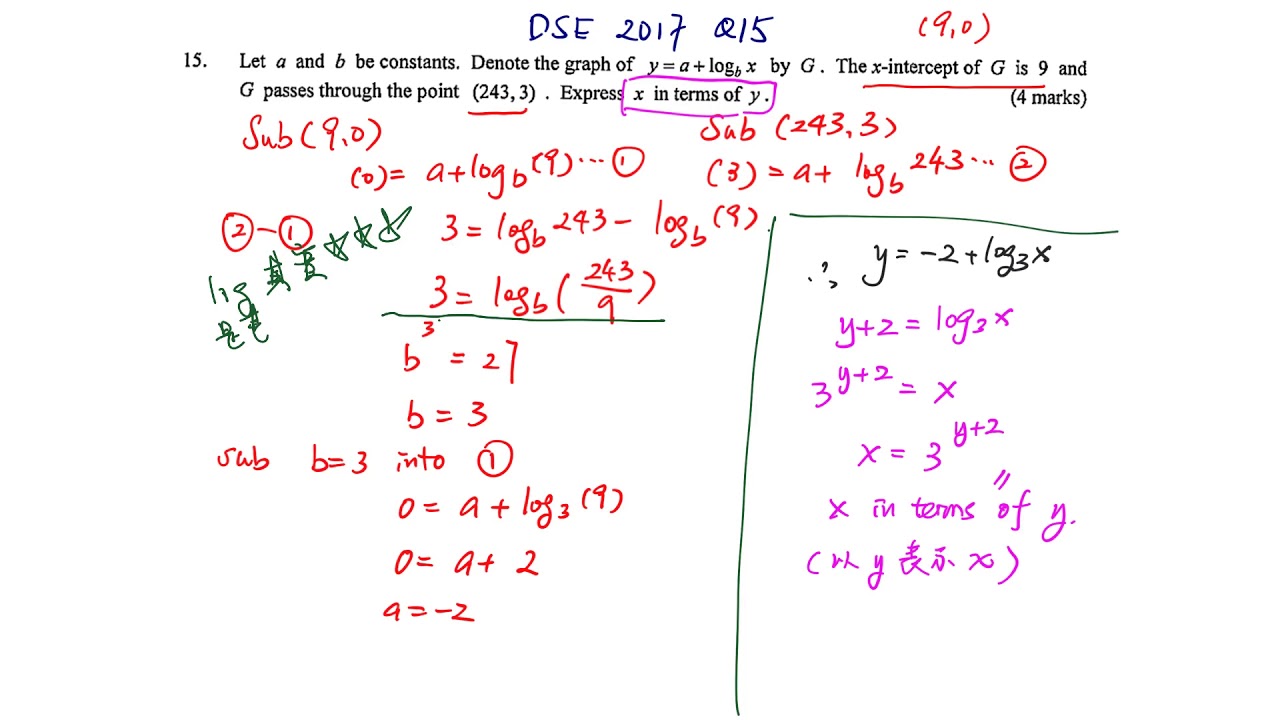 DSE 2017 Q15
(9,0)
15. Let a and b be constants. Denote the graph of y = a + log_b x by G. The x-intercept of G is 9 and
G passes through the point (243, 3). Express x in terms of y.
(4 marks)
Sub (9,0)
(0) = a + log_b (9) ... ①
② - ①
3 = log_b 243 - log_b (9)
log
3 = log_b (243/9)
b^3 = 27
b = 3
sub b = 3 into ①
0 = a + log_3 (9)
0 = a + 2
a = -2
Sub (243, 3)
(3) = a + log_b 243 ... ②
∴ y = -2 + log_3 x
y + 2 = log_3 x
3^(y+2) = x
x = 3^(y+2)
x in terms of y.
(以 y 表示 x)